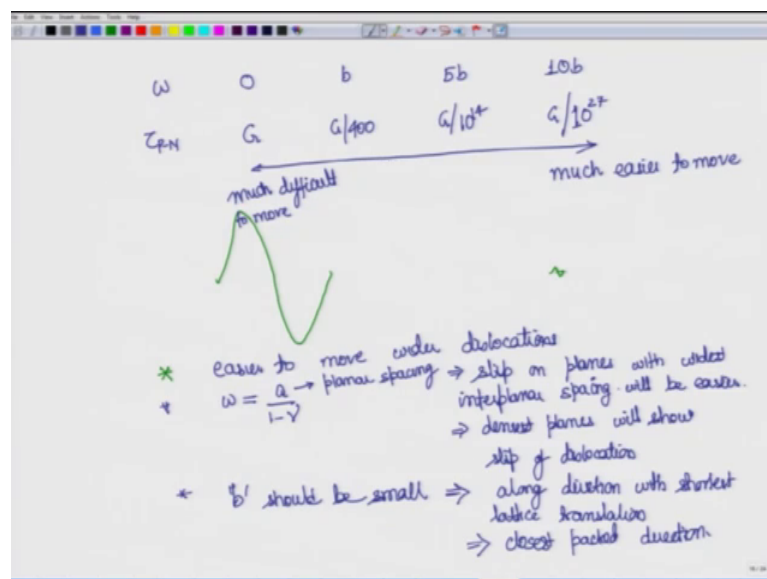 ω 0 b 5b 10b
τP-N G G/400 G/10^14 G/10^27
much difficult
to move
much easier to move
* easier to move wider dislocations
* ω = a/1-ν → planar spacing ⇒ slip on planes with widest
interplanar spacing will be easier.
⇒ densest planes will show
slip of dislocation
* 'b' should be small ⇒ along direction with shortest
lattice translation
⇒ closest packed direction